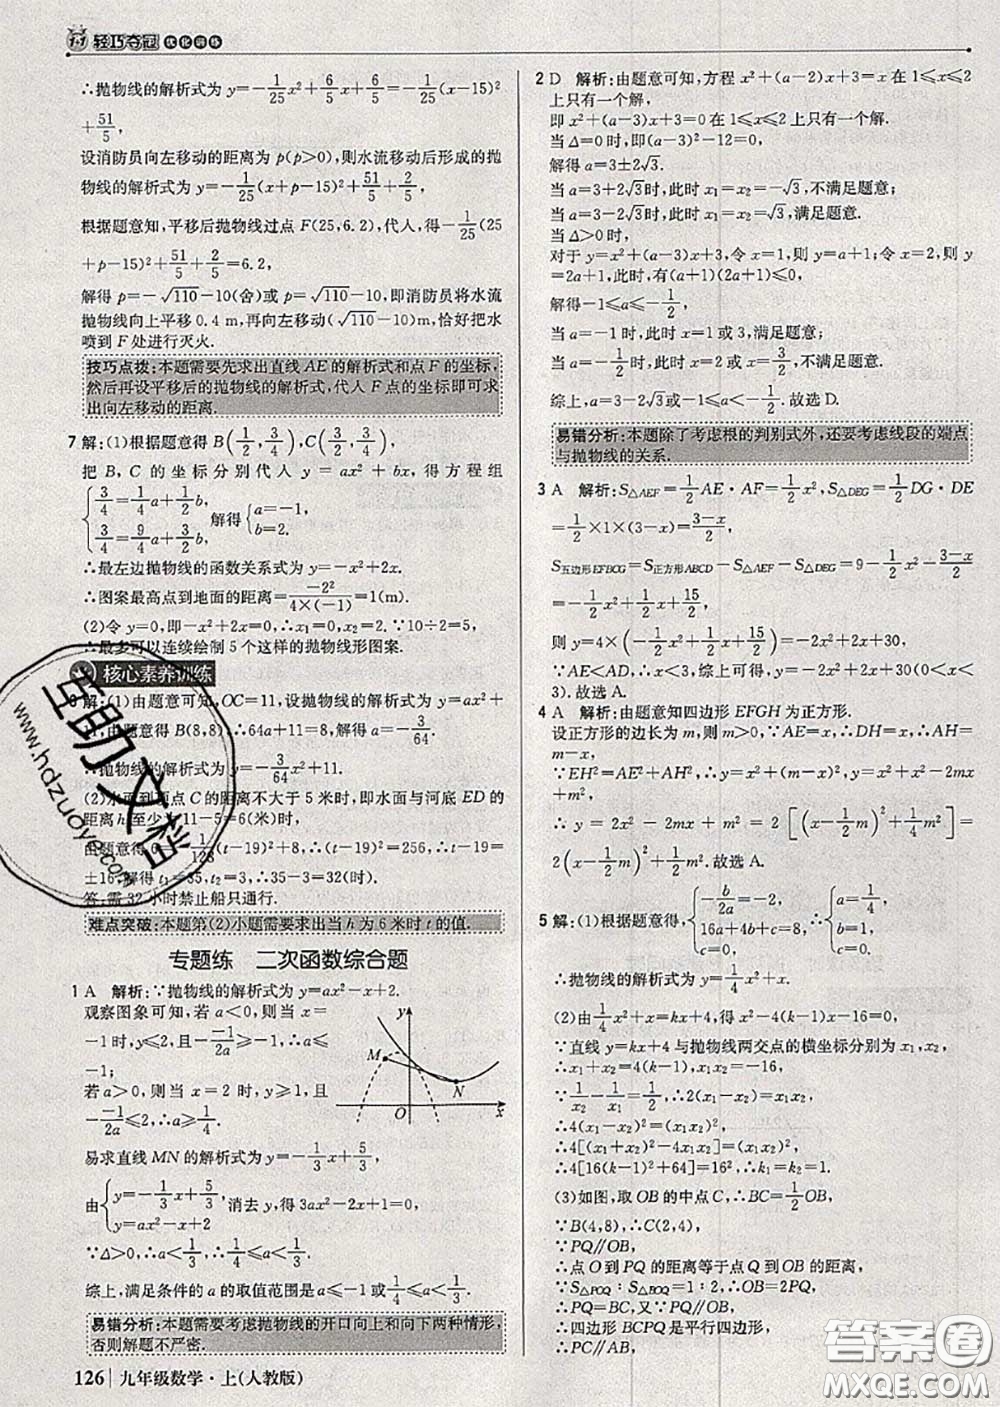 1+1 轻巧夺冠 优化训练
∴抛物线的解析式为 y=-1/25x²+6/5x+2/5=-1/25(x-15)²
+51/5,
设消防员向左移动的距离为 p(p>0),则水流移动后形成的抛
物线的解析式为 y=-1/25(x+p-15)²+51/5+2/5,
根据题意知,平移后抛物线过点 F(25,6.2),代人,得-1/25(25
+p-15)²+51/5+2/5=6.2,
解得 p=-√110-10(舍)或 p=√110-10,即消防员将水流
抛物线向上平移 0.4 m,再向左移动(√110-10)m,恰好把水
喷到 F 处进行灭火.
技巧点拨:本题需要先求出直线 AE 的解析式和点 F 的坐标,
然后再设平移后的抛物线的解析式,代人 F 点的坐标即可求
出向左移动的距离.
7 解:(1)根据题意得 B(1/2,3/4),C(3/2,3/4),
把 B,C 的坐标分别代人 y=ax²+bx,得方程组
{3/4=1/4a+1/2b, 3/4=9/4a+3/2b, 解得{a=-1, b=2.
∴最左边抛物线的函数关系式为 y=-x²+2x.
∴图案最高点到地面的距离=-2²/4×(-1)=1(m).
(2)令 y=0,即-x²+2x=0,∴x₁=0,x₂=2.∵10÷2=5,
∴最多可以连续绘制 5 个这样的抛物线形图案.
核心素养训练
8 解:(1)由题意可知,OC=11,设抛物线的解析式为 y=ax²+
11,由题意得 B(8,8),∴64a+11=8,解得 a=-3/64.
∴抛物线的解析式为 y=-3/64x²+11.
(2)水面到顶点 C 的距离不大于 5 米时,即水面与河底 ED 的
距离 h 至少为 11-5=6(米)时,
由题意得 6=-1/128(t-19)²+8,∴(t-19)²=256,∴t-19=
±16,解得 t₁=35,t₂=3,∴35-3=32(时).
答:需 32 小时禁止船只通行.
难点突破:本题第(2)小题需要求出当 h 为 6 米时 t 的值.
专题练 二次函数综合题
1 A 解析:∵抛物线的解析式为 y=ax²-x+2.
观察图象可知,若 a<0,则当 x=
-1 时,y≤2,且--1/2a≥-1,∴a≤
-1;
若 a>0,则当 x=2 时,y≥1,且
--1/2a≤2,∴a≥1/4.
y
M
N
O
x
易求直线 MN 的解析式为 y=-1/3x+5/3,
由{y=-1/3x+5/3, y=ax²-x+2 消去 y,得 3ax²-2x+1=0.
∵Δ>0,∴a<1/3,∴1/4≤a<1/3.
综上,满足条件的 a 的取值范围是 a≤-1 或1/4≤a<1/3.
易错分析:本题需要考虑抛物线的开口向上和向下两种情形,
否则解题不严密.
126 九年级数学·上(人教版)
2 D 解析:由题意可知,方程 x²+(a-2)x+3=x 在 1≤x≤2
上只有一个解,
即 x²+(a-3)x+3=0 在 1≤x≤2 上只有一个解.
当 Δ=0 时,即(a-3)²-12=0,
解得 a=3±2√3.
当 a=3+2√3时,此时 x₁=x₂=-√3,不满足题意;
当 a=3-2√3时,此时 x₁=x₂=√3,满足题意.
当 Δ>0 时,
对于 y=x²+(a-3)x+3,令 x=1,则 y=a+1;令 x=2,则 y=
2a+1,此时,有(a+1)(2a+1)≤0,
解得-1≤a≤-1/2,
当 a=-1 时,此时 x=1 或 3,满足题意;
当 a=-1/2时,此时 x=2 或 x=3/2,不满足题意.
综上,a=3-2√3或-1≤a<-1/2.故选 D.
易错分析:本题除了考虑根的判别式外,还要考虑线段的端点
与抛物线的关系.
3 A 解析:S△AEF=1/2AE·AF=1/2x²,S△DEG=1/2DG·DE
=1/2×1×(3-x)=3-x/2,
S五边形EFBCG=S正方形ABCD-S△AEF-S△DEG=9-1/2x²-3-x/2
=-1/2x²+1/2x+15/2,
则 y=4×(-1/2x²+1/2x+15/2)=-2x²+2x+30,
∵AE<AD,∴x<3,综上可得 y=-2x²+2x+30(0<x<
3).故选 A.
4 A 解析:由题意知四边形 EFGH 为正方形.
设正方形的边长为 m,则 m>0,∵AE=x,∴DH=x,∴AH=
m-x,
∵EH²=AE²+AH²,∴y=x²+(m-x)²,∴y=x²+x²-2mx
+m²,
∴y=2x²-2mx+m²=2[(x-1/2m)²+1/4m²]=
2(x-1/2m)²+1/2m².故选 A.
5 解:(1)根据题意得,{-b/2a=-2, 16a+4b+c=8, c=4, ∴{a=1/4, b=1, c=4,
∴抛物线的解析式为 y=1/4x²+x+4.
(2)由1/4x²+x+4=kx+4,得 x²-4(k-1)x-16=0,
∵直线 y=kx+4 与抛物线两交点的横坐标分别为 x₁,x₂,
∴x₁+x₂=4(k-1),x₁x₂=-16,
∵1/x₂-1/x₁=1/2,∴2(x₁-x₂)=x₁x₂,
∴4(x₁-x₂)²=(x₁x₂)²,
∴4[(x₁+x₂)²-4x₁x₂]=(x₁x₂)²,
∴4[16(k-1)²+64]=16²,∴k₁=k₂=1.
(3)如图,取 OB 的中点 C,∴BC=1/2OB,
∵B(4,8),∴C(2,4),
∵PQ∥OB,
∴点 O 到 PQ 的距离等于点 Q 到 OB 的距离,
∵S△POQ:S△BOQ=1:2,∴OB=2PQ,
∴PQ=BC,又∵PQ∥OB,
∴四边形 BCPQ 是平行四边形,
互助文档
www.hdzuoye.com
答案圈
MXQE.COM